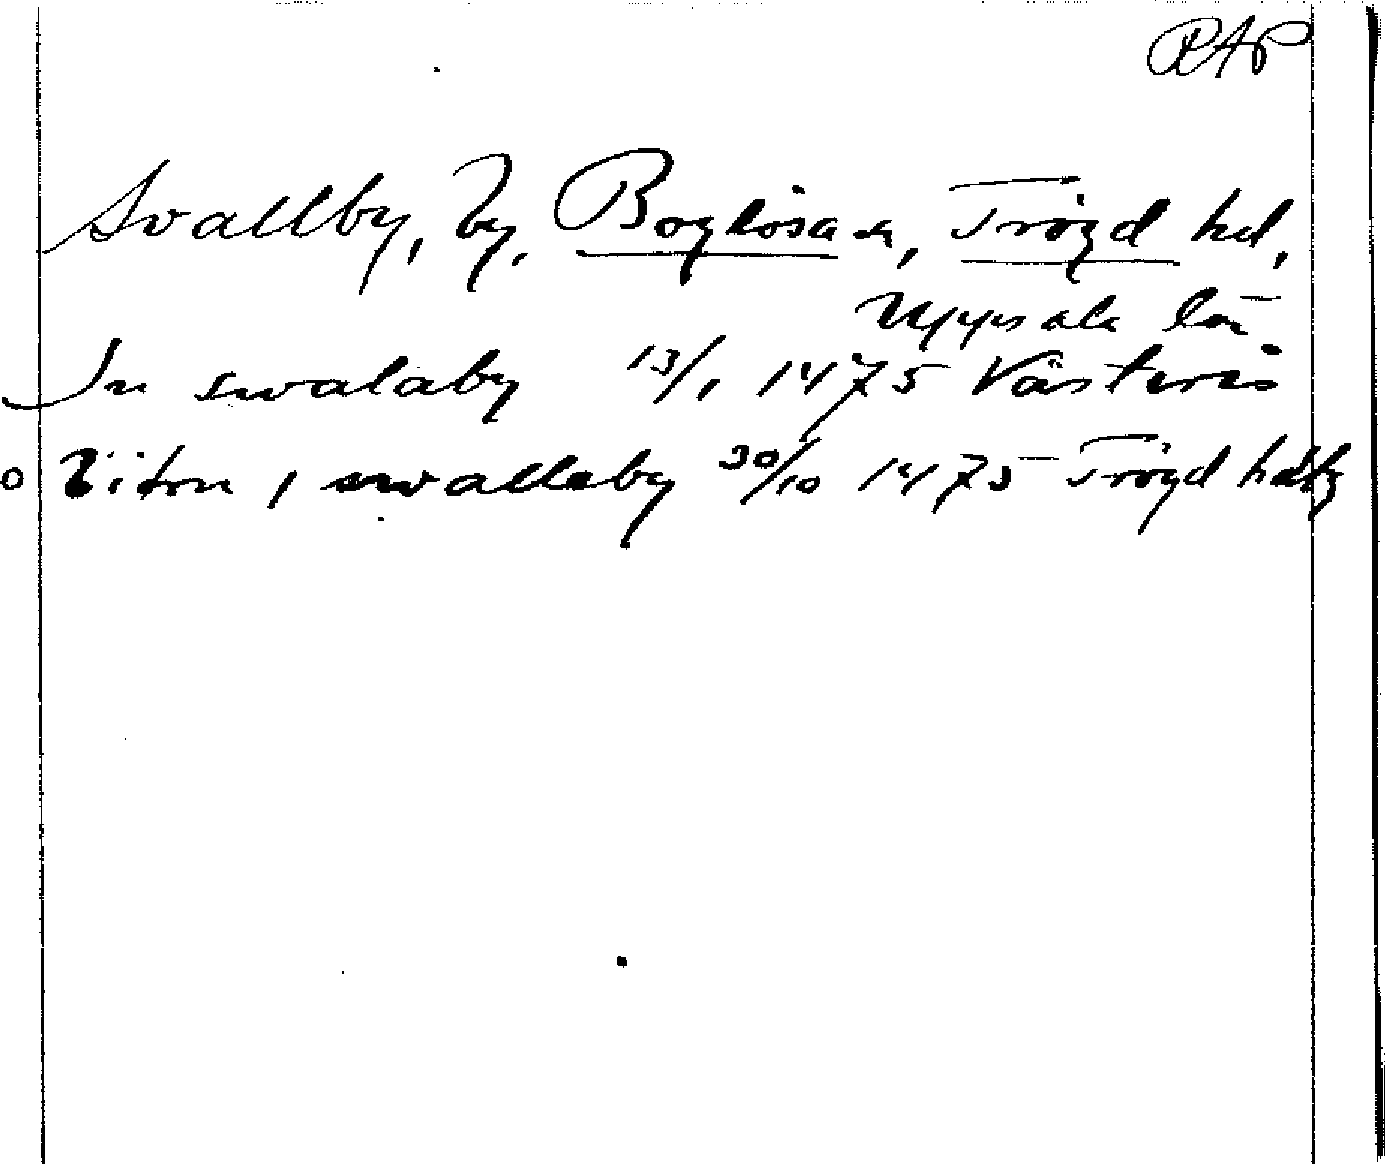 RAP
Svallby, by, Boglösa sn, Tröyd hd,
Uppsala län
In swalaby 13/1 1475 Västerås
i swalleby 30/10 1475 Tröyd